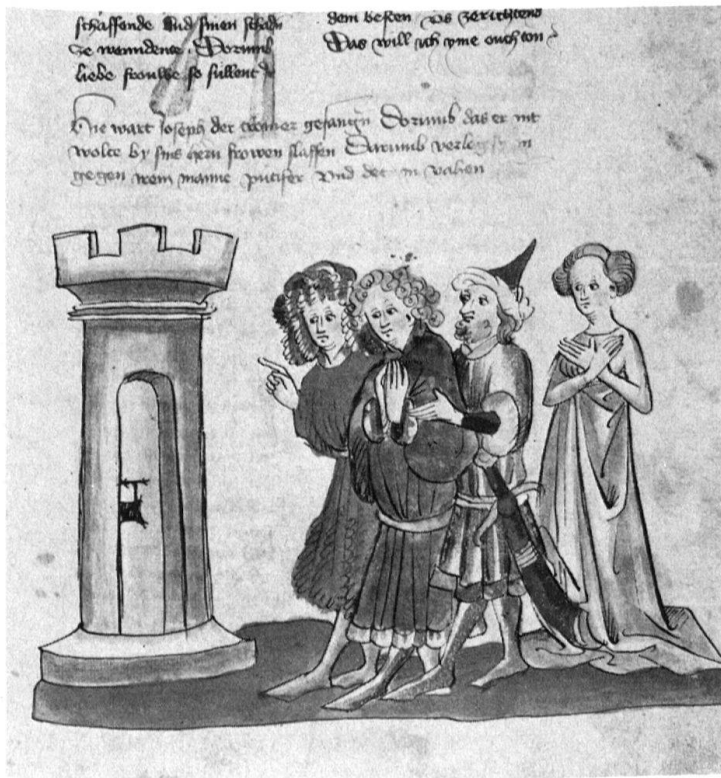 schaffende Vnd sinen schadn
ze wenndente. Dorumb
liebe frouwe so sullent
dem besten vs zerichtend
Das will ich yme ouch ton
Hie wart Joseph der gefangn Dorumb das er nit
wolte by sins hern frowen slaffen Darumb in
gegen irem manne putifer Vnd det in vahen